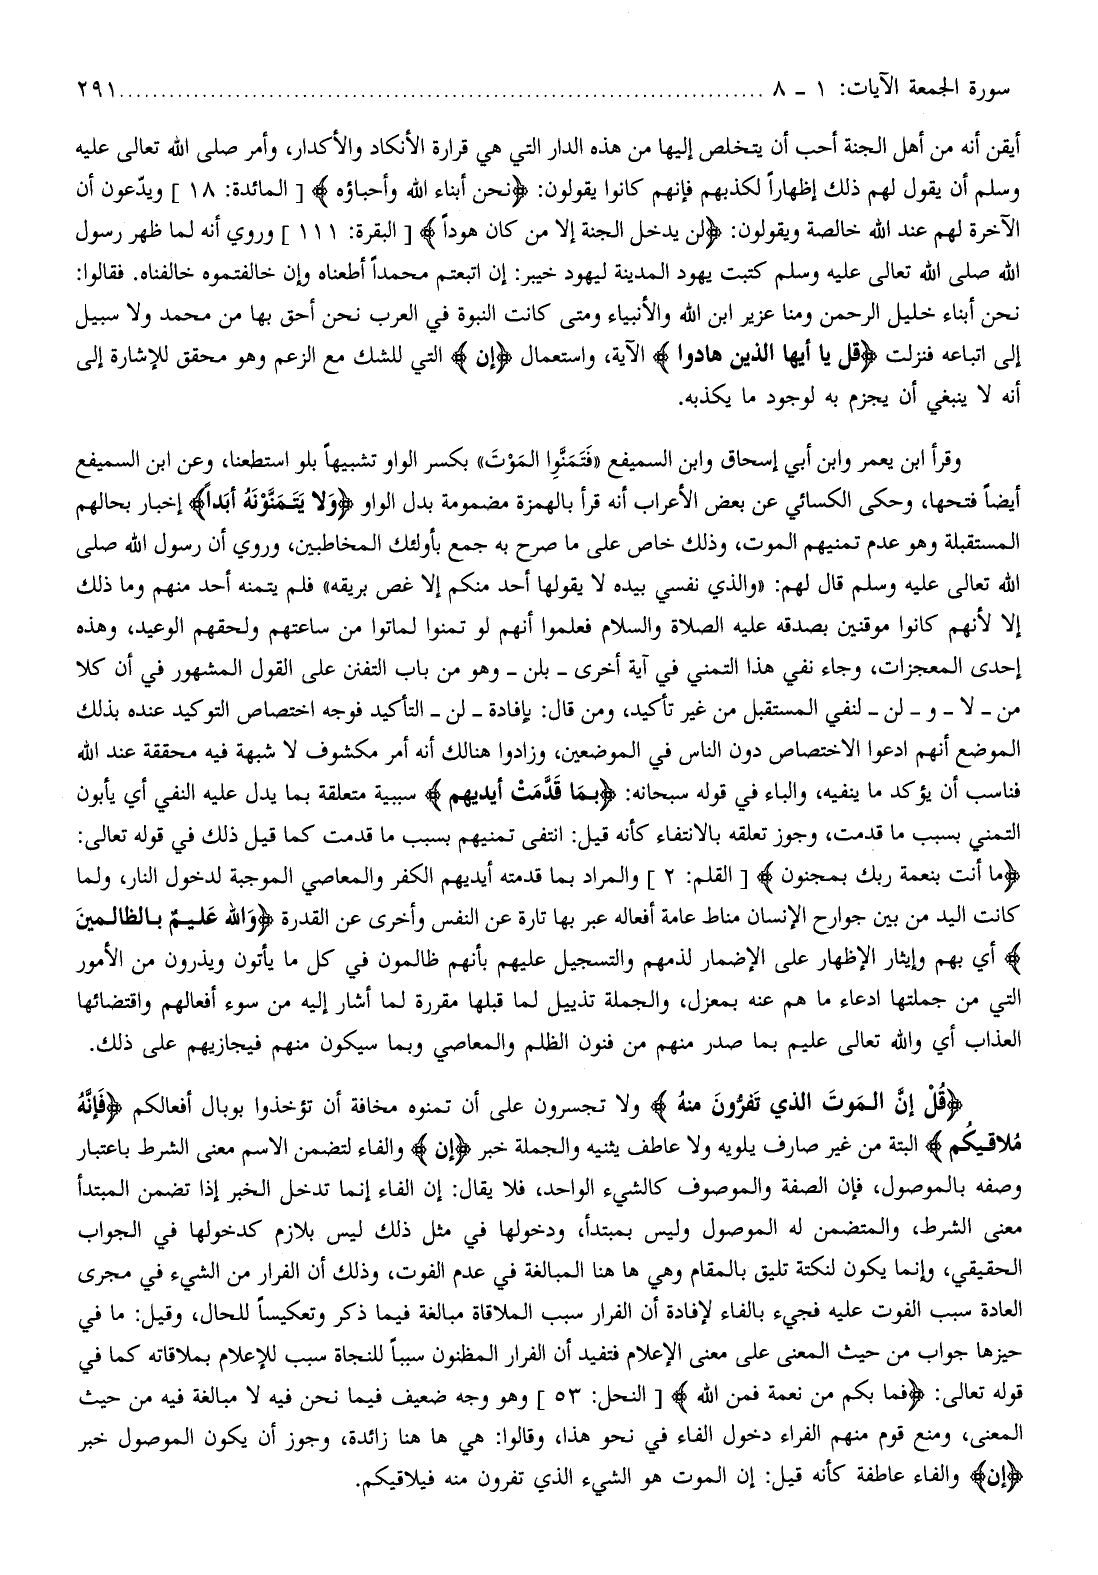 سورة الجمعة الآيات: ١ ـ ٨ .......................................................................... ٢٩١
أيقن أنه من أهل الجنة أحب أن يتخلص إليها من هذه الدار التي هي قرارة الأنكاد والأكدار، وأمر صلى الله تعالى عليه
وسلم أن يقول لهم ذلك إظهاراً لكذبهم فإنهم كانوا يقولون: ﴿نحن أبناء الله وأحباؤه ﴾ [ المائدة: ١٨ ] ويدّعون أن
الآخرة لهم عند الله خالصة ويقولون: ﴿لن يدخل الجنة إلا من كان هوداً ﴾ [ البقرة: ١١١ ] وروي أنه لما ظهر رسول
الله صلى الله تعالى عليه وسلم كتبت يهود المدينة ليهود خيبر: إن اتبعتم محمداً أطعناه وإن خالفتموه خالفناه. فقالوا:
نحن أبناء خليل الرحمن ومنا عزير ابن الله والأنبياء ومتى كانت النبوة في العرب نحن أحق بها من محمد ولا سبيل
إلى اتباعه فنزلت ﴿قل يا أيها الذين هادوا ﴾ الآية، واستعمال ﴿إن ﴾ التي للشك مع الزعم وهو محقق للإشارة إلى
أنه لا ينبغي أن يجزم به لوجود ما يكذبه.
وقرأ ابن يعمر وابن أبي إسحاق وابن السميفع «فَتَمَنَّوِا المَوْتَ» بكسر الواو تشبيهاً بلو استطعنا، وعن ابن السميفع
أيضاً فتحها، وحكى الكسائي عن بعض الأعراب أنه قرأ بالهمزة مضمومة بدل الواو ﴿وَلا يَتَمَنَّوْنَهُ أبَداً﴾ إخبار بحالهم
المستقبلة وهو عدم تمنيهم الموت، وذلك خاص على ما صرح به جمع بأولئك المخاطبين، وروي أن رسول الله صلى
الله تعالى عليه وسلم قال لهم: «والذي نفسي بيده لا يقولها أحد منكم إلا غص بريقه» فلم يتمنه أحد منهم وما ذلك
إلا لأنهم كانوا موقنين بصدقه عليه الصلاة والسلام فعلموا أنهم لو تمنوا لماتوا من ساعتهم ولحقهم الوعيد، وهذه
إحدى المعجزات، وجاء نفي هذا التمني في آية أخرى ـ بلن ـ وهو من باب التفنن على القول المشهور في أن كلا
من ـ لا ـ و ـ لن ـ لنفي المستقبل من غير تأكيد، ومن قال: بإفادة ـ لن ـ التأكيد فوجه اختصاص التوكيد عنده بذلك
الموضع أنهم ادعوا الاختصاص دون الناس في الموضعين، وزادوا هنالك أنه أمر مكشوف لا شبهة فيه محققة عند الله
فناسب أن يؤكد ما ينفيه، والباء في قوله سبحانه: ﴿بمَا قَدَّمَتْ أيديهم ﴾ سببية متعلقة بما يدل عليه النفي أي يأبون
التمني بسبب ما قدمت، وجوز تعلقه بالانتفاء كأنه قيل: انتفى تمنيهم بسبب ما قدمت كما قيل ذلك في قوله تعالى:
﴿ما أنت بنعمة ربك بمجنون ﴾ [ القلم: ٢ ] والمراد بما قدمته أيديهم الكفر والمعاصي الموجبة لدخول النار، ولما
كانت اليد من بين جوارح الإنسان مناط عامة أفعاله عبر بها تارة عن النفس وأخرى عن القدرة ﴿وَالله عَليمٌ بالظالمينَ
﴾ أي بهم وإيثار الإظهار على الإضمار لذمهم والتسجيل عليهم بأنهم ظالمون في كل ما يأتون ويذرون من الأمور
التي من جملتها ادعاء ما هم عنه بمعزل، والجملة تذييل لما قبلها مقررة لما أشار إليه من سوء أفعالهم واقتضائها
العذاب أي والله تعالى عليم بما صدر منهم من فنون الظلم والمعاصي وبما سيكون منهم فيجازيهم على ذلك.
﴿قُلْ إنَّ المَوتَ الذي تَفرُّونَ منهُ ﴾ ولا تجسرون على أن تمنوه مخافة أن تؤخذوا بوبال أفعالكم ﴿فَإنَّهُ
مُلاقيكُم ﴾ البتة من غير صارف يلويه ولا عاطف يثنيه والجملة خبر ﴿إن ﴾ والفاء لتضمن الاسم معنى الشرط باعتبار
وصفه بالموصول، فإن الصفة والموصوف كالشيء الواحد، فلا يقال: إن الفاء إنما تدخل الخبر إذا تضمن المبتدأ
معنى الشرط، والمتضمن له الموصول وليس بمبتدأ، ودخولها في مثل ذلك ليس بلازم كدخولها في الجواب
الحقيقي، وإنما يكون لنكتة تليق بالمقام وهي ها هنا المبالغة في عدم الفوت، وذلك أن الفرار من الشيء في مجرى
العادة سبب الفوت عليه فجيء بالفاء لإفادة أن الفرار سبب الملاقاة مبالغة فيما ذكر وتعكيساً للحال، وقيل: ما في
حيزها جواب من حيث المعنى على معنى الإعلام فتفيد أن الفرار المظنون سبباً للنجاة سبب للإعلام بملاقاته كما في
قوله تعالى: ﴿فما بكم من نعمة فمن الله ﴾ [ النحل: ٥٣ ] وهو وجه ضعيف فيما نحن فيه لا مبالغة فيه من حيث
المعنى، ومنع قوم منهم الفراء دخول الفاء في نحو هذا، وقالوا: هي ها هنا زائدة، وجوز أن يكون الموصول خبر
﴿إن﴾ والفاء عاطفة كأنه قيل: إن الموت هو الشيء الذي تفرون منه فيلاقيكم.